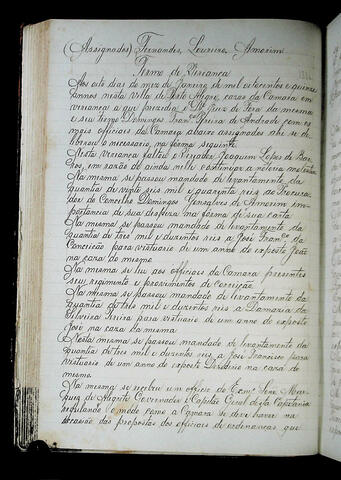 (Assignados) Fernandes, Loureiro, Amorim
Termo de Vereança
Aos oito dias do mez de Janeiro de mil oitocentos e quinze
annos nesta villa de Porto Alegre, casas da Camara em
vereança a que prezidio o Dr. Juiz de Fora da mesma
e seu termo Domingos Franco Meira de Andrade com os
mais officiaes da Camara abaixo assignados ahi se de-
liberou o necessario, na forma seguinte
Nesta vereança faltou o Vereador Joaquim Lopes de Bar-
ros, em razão de ainda
Na mesma se passou mandado de levantamento da
quantia de vinte seis mil e quarenta reis ao Procura-
dor do Concelho Domingos Gonsalves de Amorim im-
portancia de sua despeza na forma de sua conta
Na mesma se passou mandado de levantamento da
quantia de tres mil e duzentos reis a José Franco da
Conceição para vestuario de um anno do exposto João
na casa do mesmo
Na mesma se leu aos officiaes da Camara presentes
seu regimento e provimentos de correição
Na mesma se passou mandado de levantamento da
quantia de tres mil e duzentos reis a Damazia da
Silveira para vestuario de um anno do exposto
José na casa da mesma
Nesta mesma se passou mandado de levantamento da
quantia de tres mil e duzentos reis a José Francisco para
vestuario de um anno do exposto na casa do
mesmo
Na mesma se recebeu um officio do Exmo. Snr. Mar-
quez de Alegrete Governador e Capitão General desta Capitania
regulando o modo como a Camara se deve haver na
occasião das propostas dos officiaes de ordenanças, que